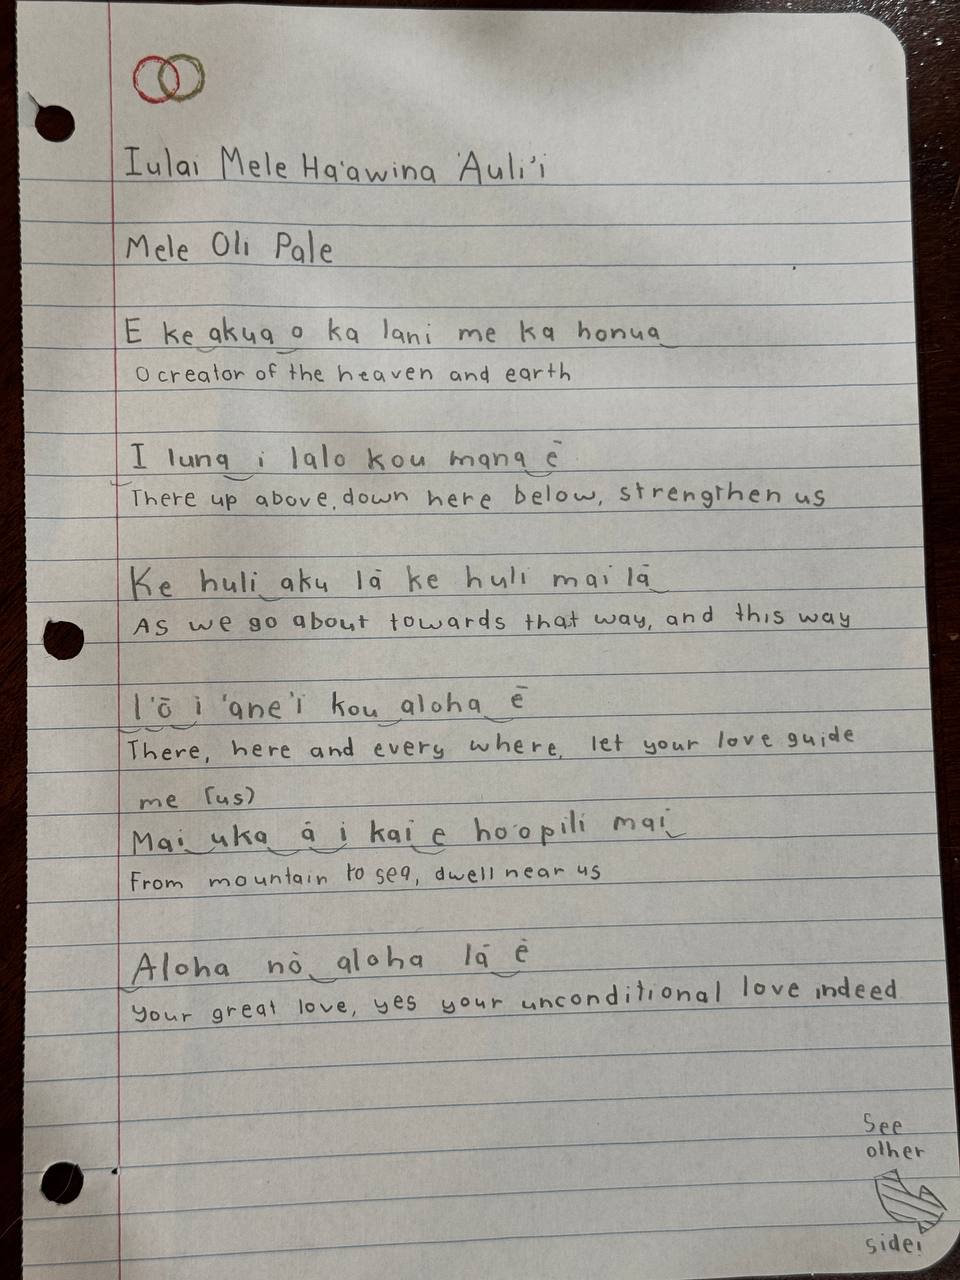 Iulai Mele Ha'awina 'Auli'i
Mele Oli Pale
E ke akua o ka lani me ka honua
O creator of the heaven and earth
I luna i lalo kou mana ē
There up above, down here below, strengthen us
Ke huli aku lā ke huli mai lā
As we go about towards that way, and this way
I 'ō i 'ane'i kou aloha ē
There, here and every where, let your love guide
me (us)
Mai uka ā i kai e ho'opili mai
From mountain to sea, dwell near us
Aloha nō aloha lā ē
Your great love, yes your unconditional love indeed
See
other
side!